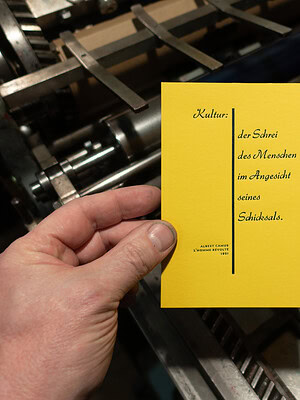 Kultur:
der Schrei
des Menschen
im Angesicht
seines
Schicksals.
ALBERT CAMUS
L'HOMME RÉVOLTÉ
1951